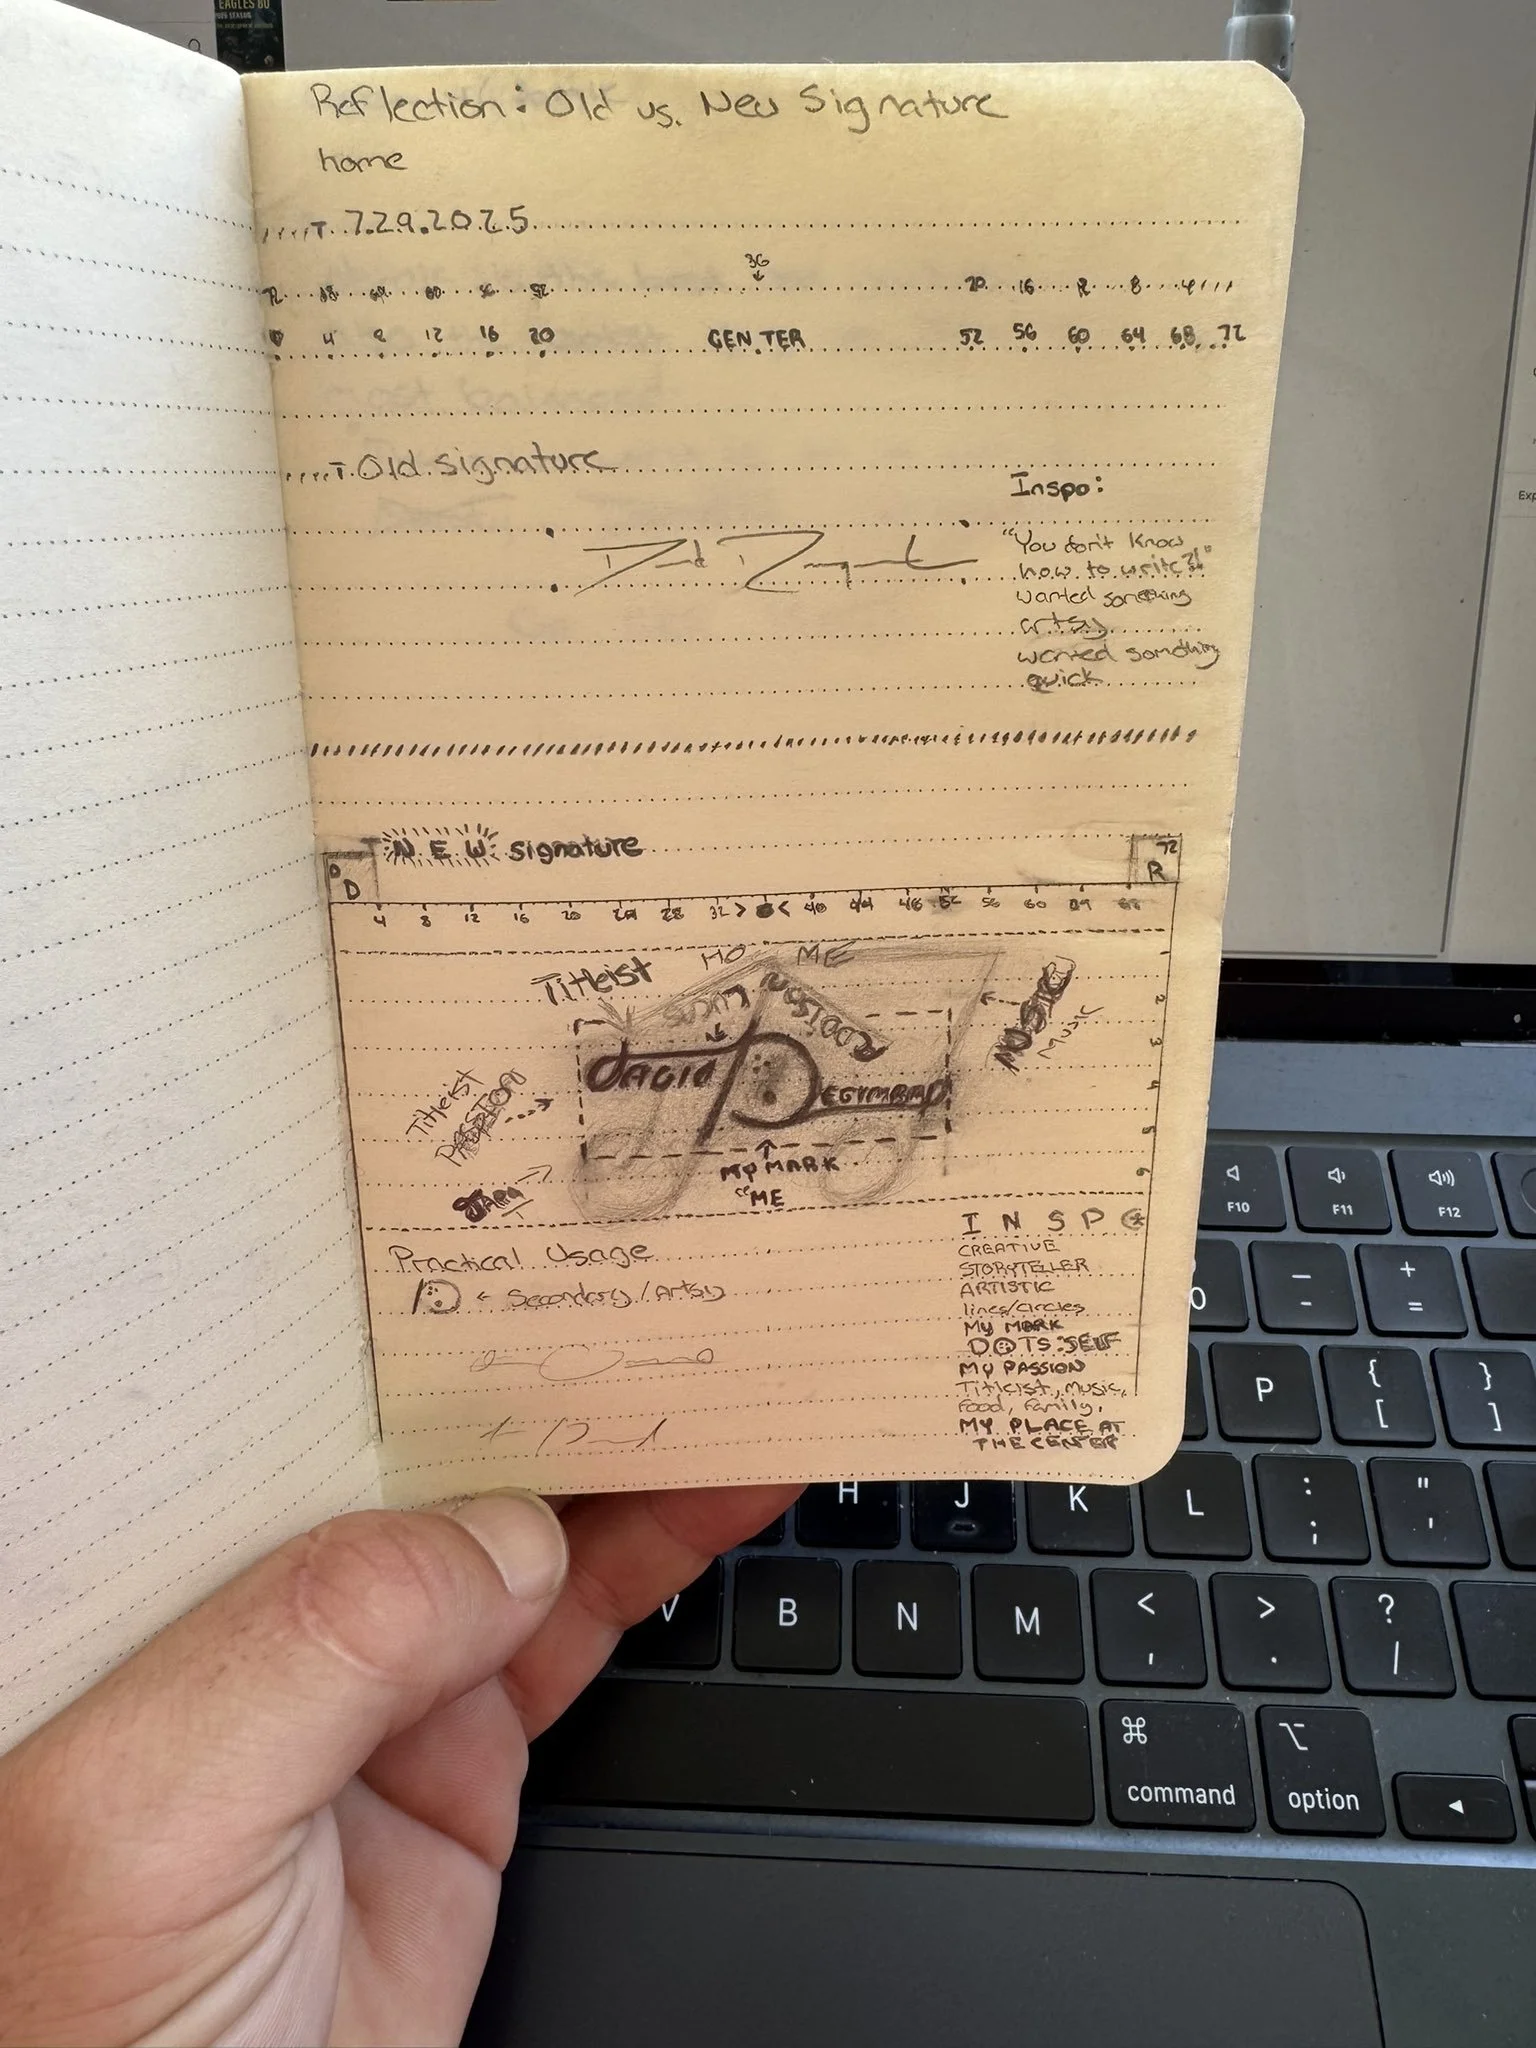 EAGLES BO
2025 SEASON
Reflection: Old vs. New Signature
home
T 7.29.2025
36
72 68 64 60 56 52 20 16 12 8 4
0 4 8 12 16 20 CENTER 52 56 60 64 68 72
T Old signature
Inspo:
"You don't know
how to write?!"
wanted something
artsy
wanted something
quick
T NEW signature
0 D
72 R
4 8 12 16 20 24 28 32 > < 40 44 48 52 56 60 64 68
HO ME
Titleist
LUCAS
MUSIC
Music
1
2
3
4
5
6
DAVID
Titleist
PASSION
MY MARK
"ME
INSPO
Practical Usage
CREATIVE
STORYTELLER
ARTISTIC
D ← Secondary/Artsy
lines/circles
MY MARK
DOTS:SELF
MY PASSION
Titleist, Music,
Food, Family,
MY PLACE AT
THE CENTER
Exp
F10
F11
F12
–
-
+
=
P
{
[
}
]
H
J
K
L
:
;
"
'
V
B
N
M
<
,
>
.
?
/
⌘
command
⌥
option
◄